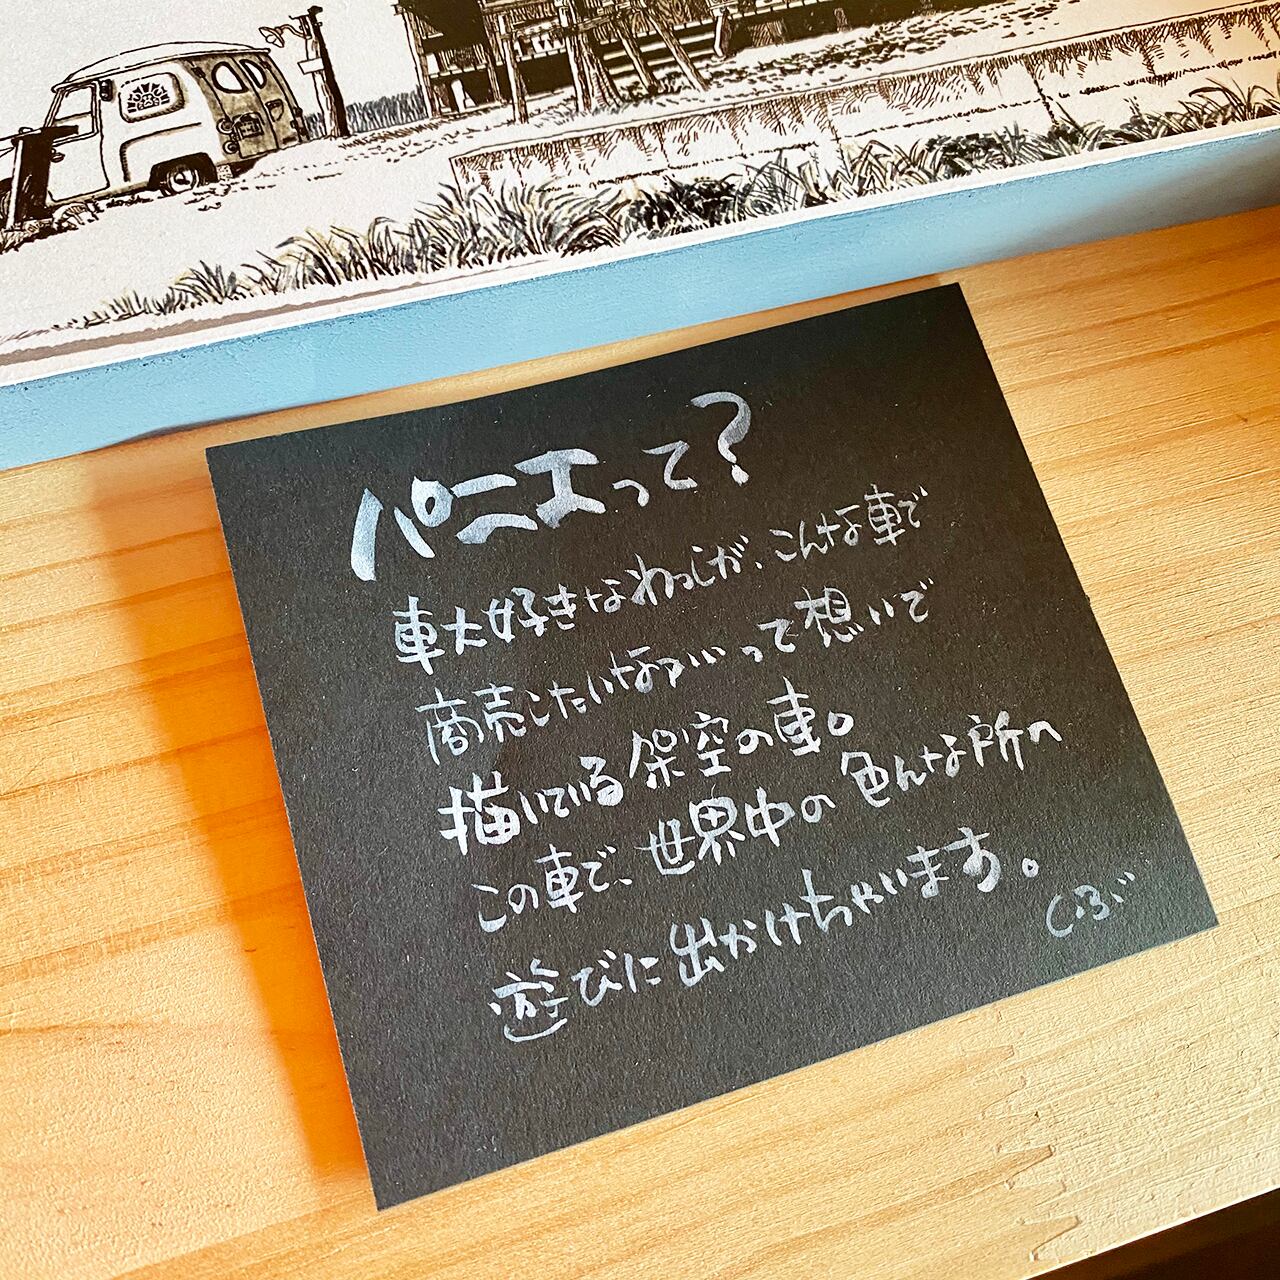 パニエって?
車大好きなわっしが、こんな車で
商売したいなァいって想いで
描いている架空の車。
この車で、世界中の色んな所へ
遊びに出かけちゃいます。
しぶ